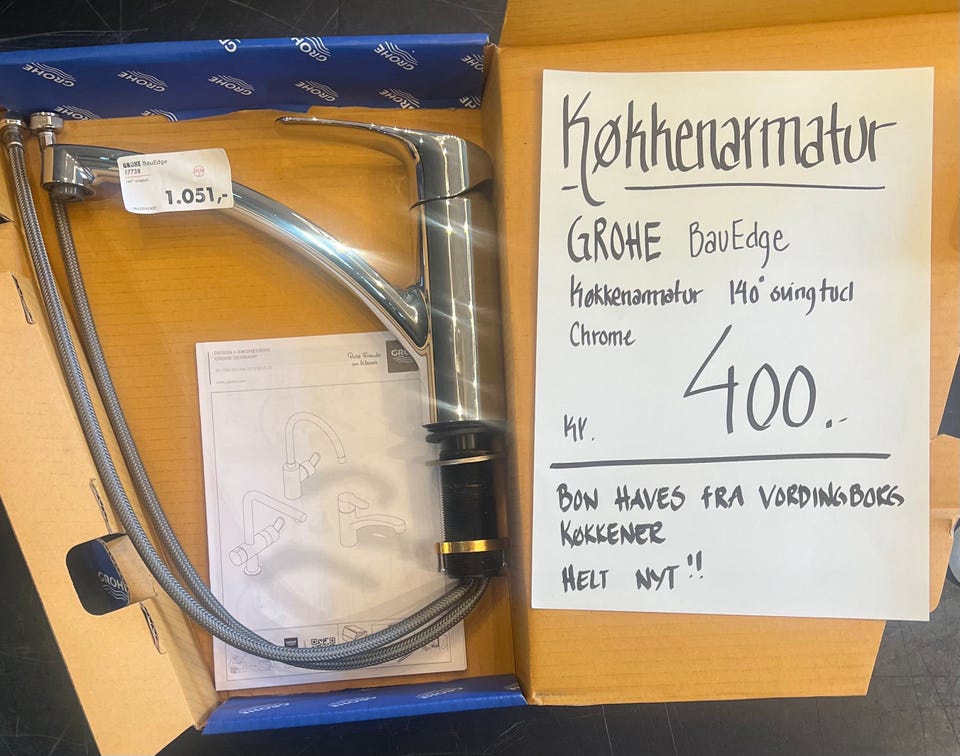 GROHE
GROHE
GROHE
GROHE
GROHE
GROHE
GROHE BauEdge
17738
140° svingtud
1.051,-
DESIGN + ENGINEERING
GROHE GERMANY
www.grohe.com
Pure Freude
an Wasser
GROHE
GROHE
Køkkenarmatur
GROHE BauEdge
Køkkenarmatur 140° svingtud
Chrome
Kr. 400.-
BON HAVES FRA VORDINGBORG
KØKKENER
HELT NYT!!